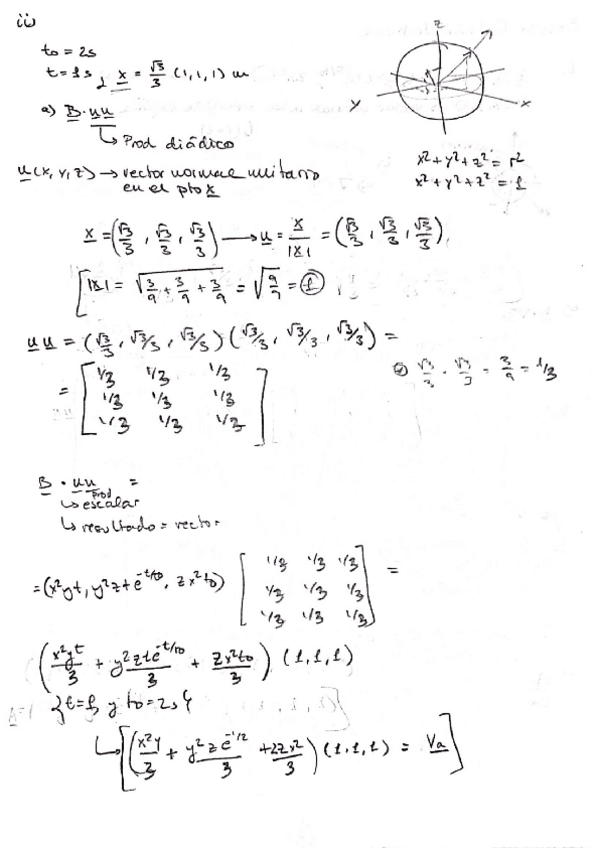 iii)
z
to = 2s
t = 1s y x = √3/3 (1,1,1) m
a) B · uu
↳ Prod diádico
Y
X
u(x,y,z) → vector normal unitario
en el pto x
x²+y²+z² = r²
x²+y²+z² = 1
x = (√3/3, √3/3, √3/3) → u = x/|x| = (√3/3, √3/3, √3/3)
[|x| = √(3/9 + 3/9 + 3/9) = √(9/9) = 1
u u = (√3/3, √3/3, √3/3)(√3/3, √3/3, √3/3) =
√3/3 · √3/3 = 3/9 = 1/3
= [1/3 1/3 1/3
1/3 1/3 1/3
1/3 1/3 1/3]
B · uu =
↳ Prod escalar
↳ resultado = vector
= (x²yt, y²zte^(-t/to), zx²to) [1/3 1/3 1/3
1/3 1/3 1/3
1/3 1/3 1/3] =
(x²yt/3 + y²zte^(-t/to)/3 + zx²to/3) (1,1,1)
{t=1, y to=2s}
↳ [(x²y/3 + y²ze^(-1/2)/3 + 2zx²/3) (1,1,1) = Va]